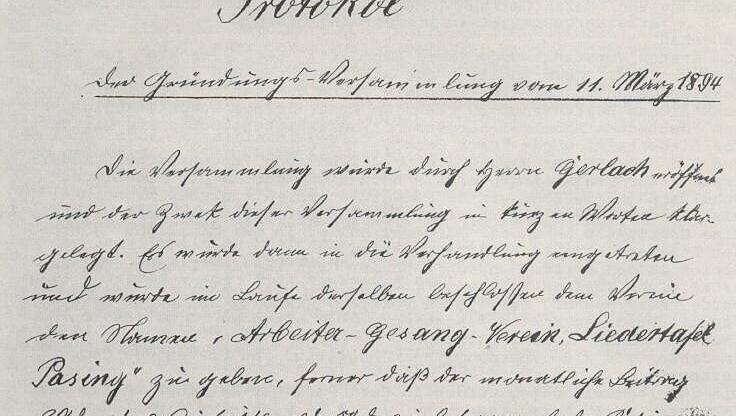 Protokol
der Gründungs-Versammlung vom 11. März 1894
Die Versammlung wurde durch Herrn Gerlach eröffnet
und der Zwek dieser Versammlung in kurzen Worten klar-
gelegt. Es wurde dann in die Verhandlung eingetreten
und wurde im Laufe derselben beschlossen dem Verein
den Namen „Arbeiter-Gesang-Verein, Liedertafel
Pasing" zu geben, ferner daß der monatliche Beitrag